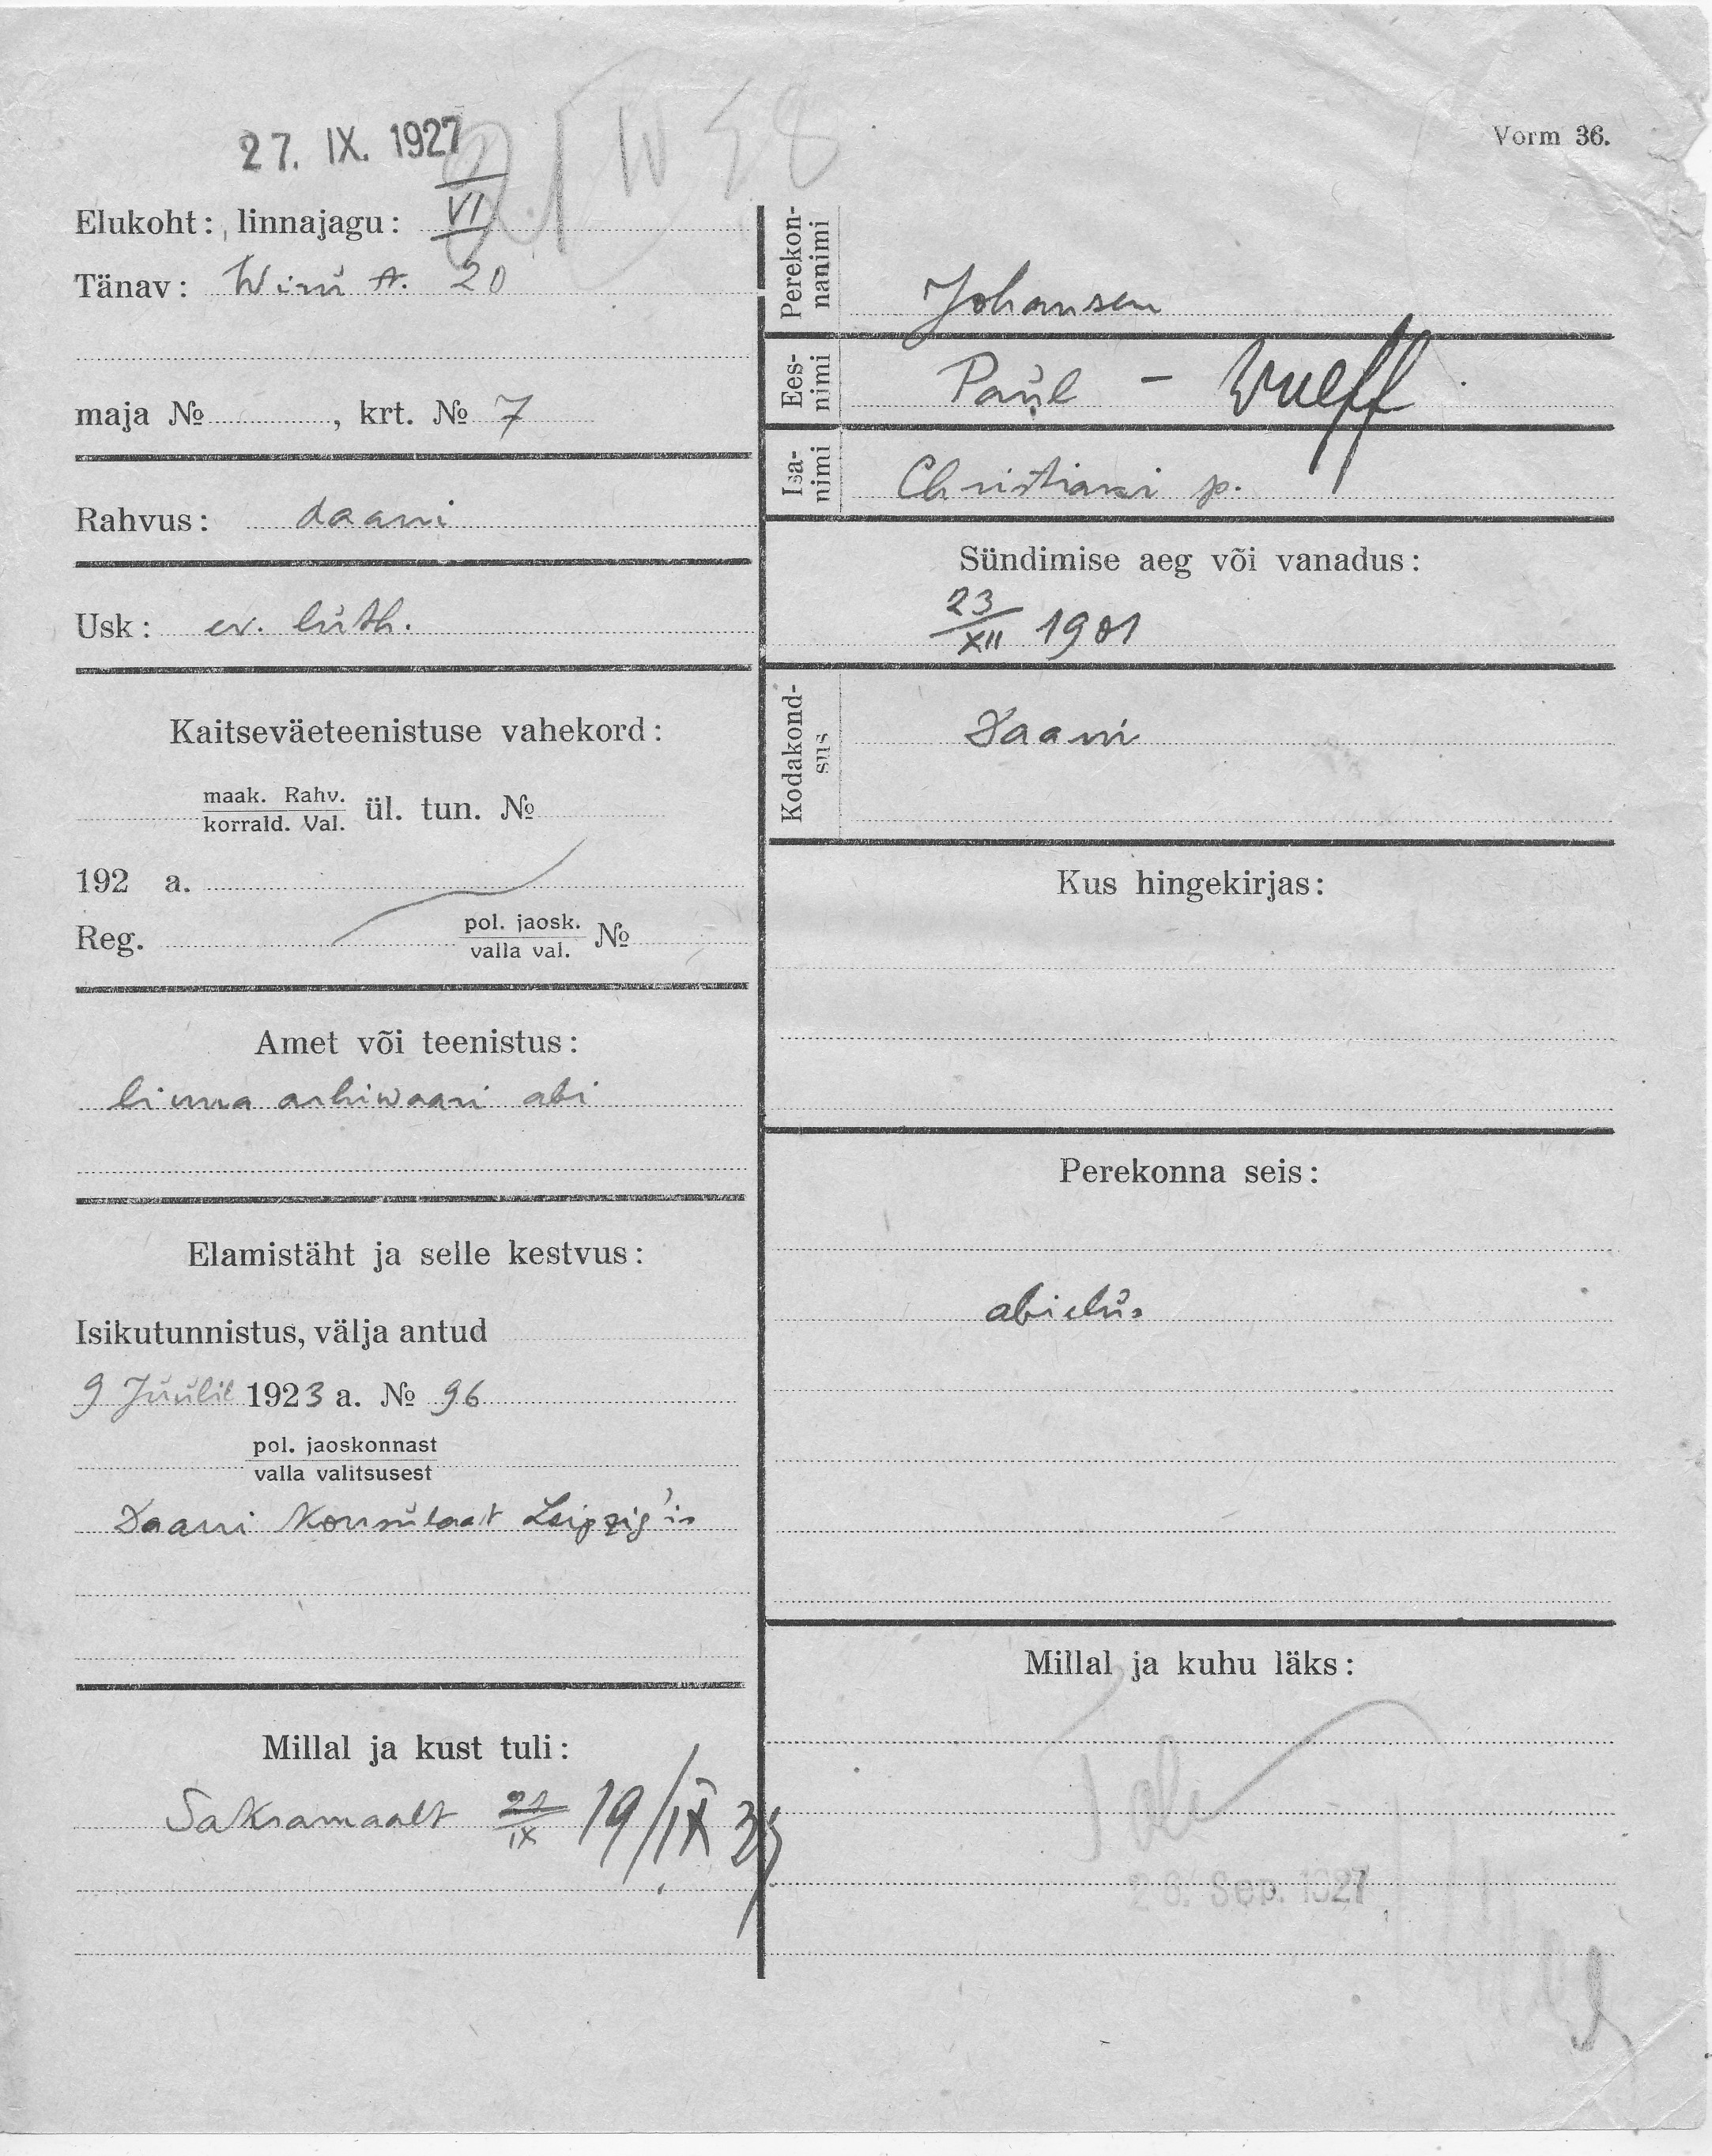 27. IX. 1927
Vorm 36.
Elukoht: linnajagu: VI
Tänav: Wiru t. 20
maja № , krt. № 7
Rahvus: daani
Usk: ev. luth.
Kaitseväeteenistuse vahekord:
maak. Rahv.
korrald. Val. ül. tun. №
192 a.
Reg. pol. jaosk.
valla val. №
Amet või teenistus:
linna arhiwaari abi
Elamistäht ja selle kestvus:
Isikutunnistus, välja antud
9 Juulil 1923 a. № 96
pol. jaoskonnast
valla valitsusest
Daani Konsulaat Leipzig'is
Millal ja kust tuli:
Saksamaalt 21/IX 19/IX
Perekonnanimi Johansen
Eesnimi Paul - Wulff
Isanimi Christiani p.
Sündimise aeg või vanadus:
23/XII 1901
Kodakondsus Daani
Kus hingekirjas:
Perekonna seis:
abielus
Millal ja kuhu läks:
26. Sep. 1927